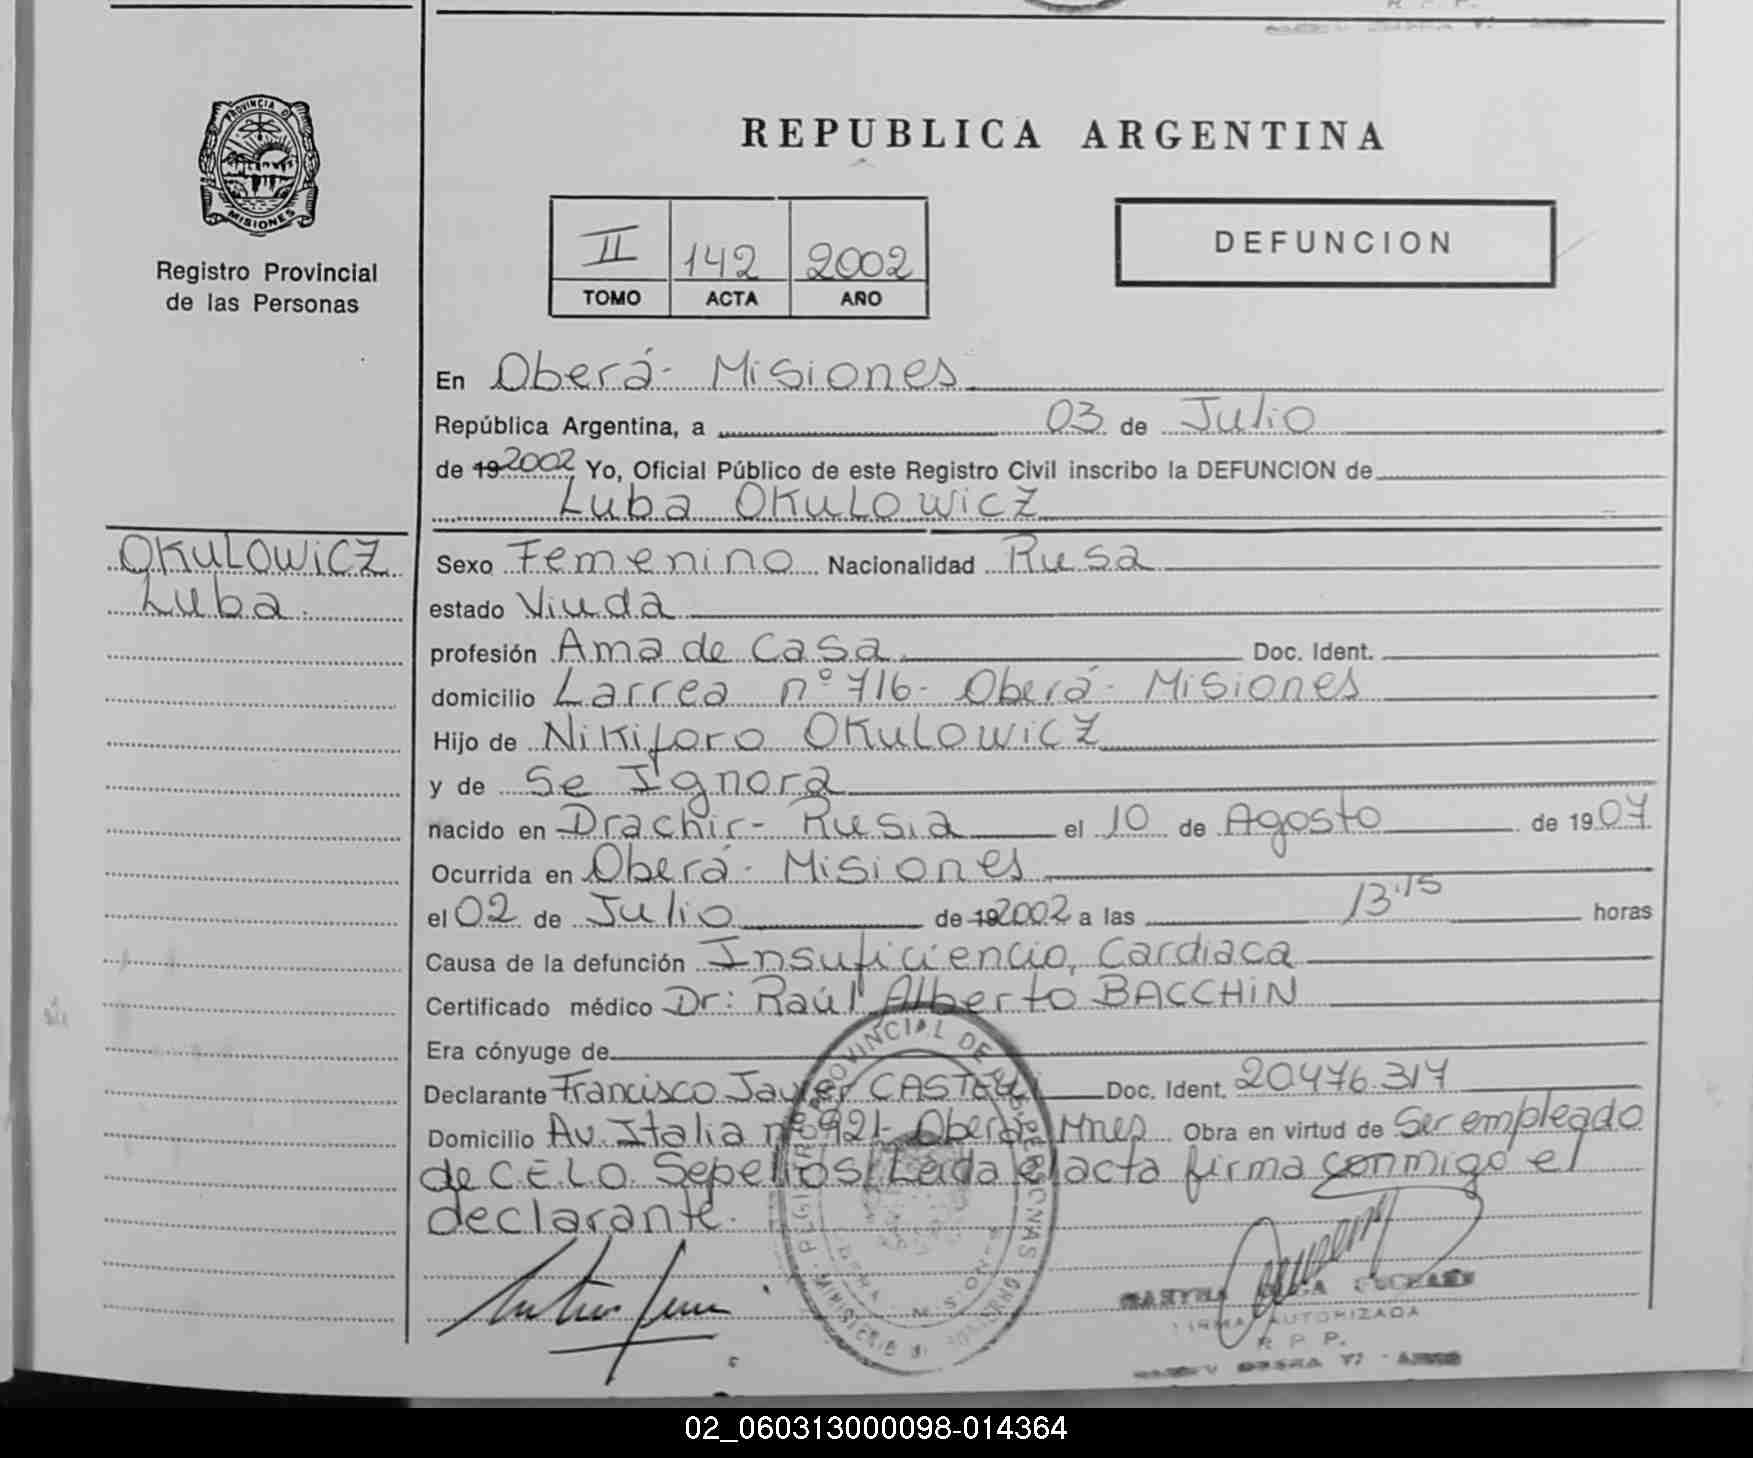 REPUBLICA ARGENTINA
PROVINCIA DE
MISIONES
Registro Provincial
de las Personas
II 142 2002
TOMO ACTA AÑO
DEFUNCION
En Oberá- Misiones
República Argentina, a 03 de Julio
de 19 2002 Yo, Oficial Público de este Registro Civil inscribo la DEFUNCION de
Luba OKULOWICZ
OKULOWICZ
Luba
Sexo Femenino Nacionalidad Rusa
estado Viuda
profesión Ama de Casa Doc. Ident.
domicilio Larrea nº 716- Oberá- Misiones
Hijo de Nikiforo OKULOWICZ
y de Se Ignora
nacido en Drachir- Rusia el 10 de Agosto de 1907
Ocurrida en Oberá- Misiones
el 02 de Julio de 19 2002 a las 13:15 horas
Causa de la defunción Insuficiencia, Cardiaca
Certificado médico Dr: Raúl Alberto BACCHIN
Era cónyuge de
Declarante Francisco Javier Doc. Ident. 20476.317
Domicilio Av. Italia nº 921- Oberá- Mnes Obra en virtud de Ser empleado
de C.E.L.O. Sepelios/ Leida el acta firma conmigo el
declarante.
FIRMA AUTORIZADA
R. P. P.
02_060313000098-014364